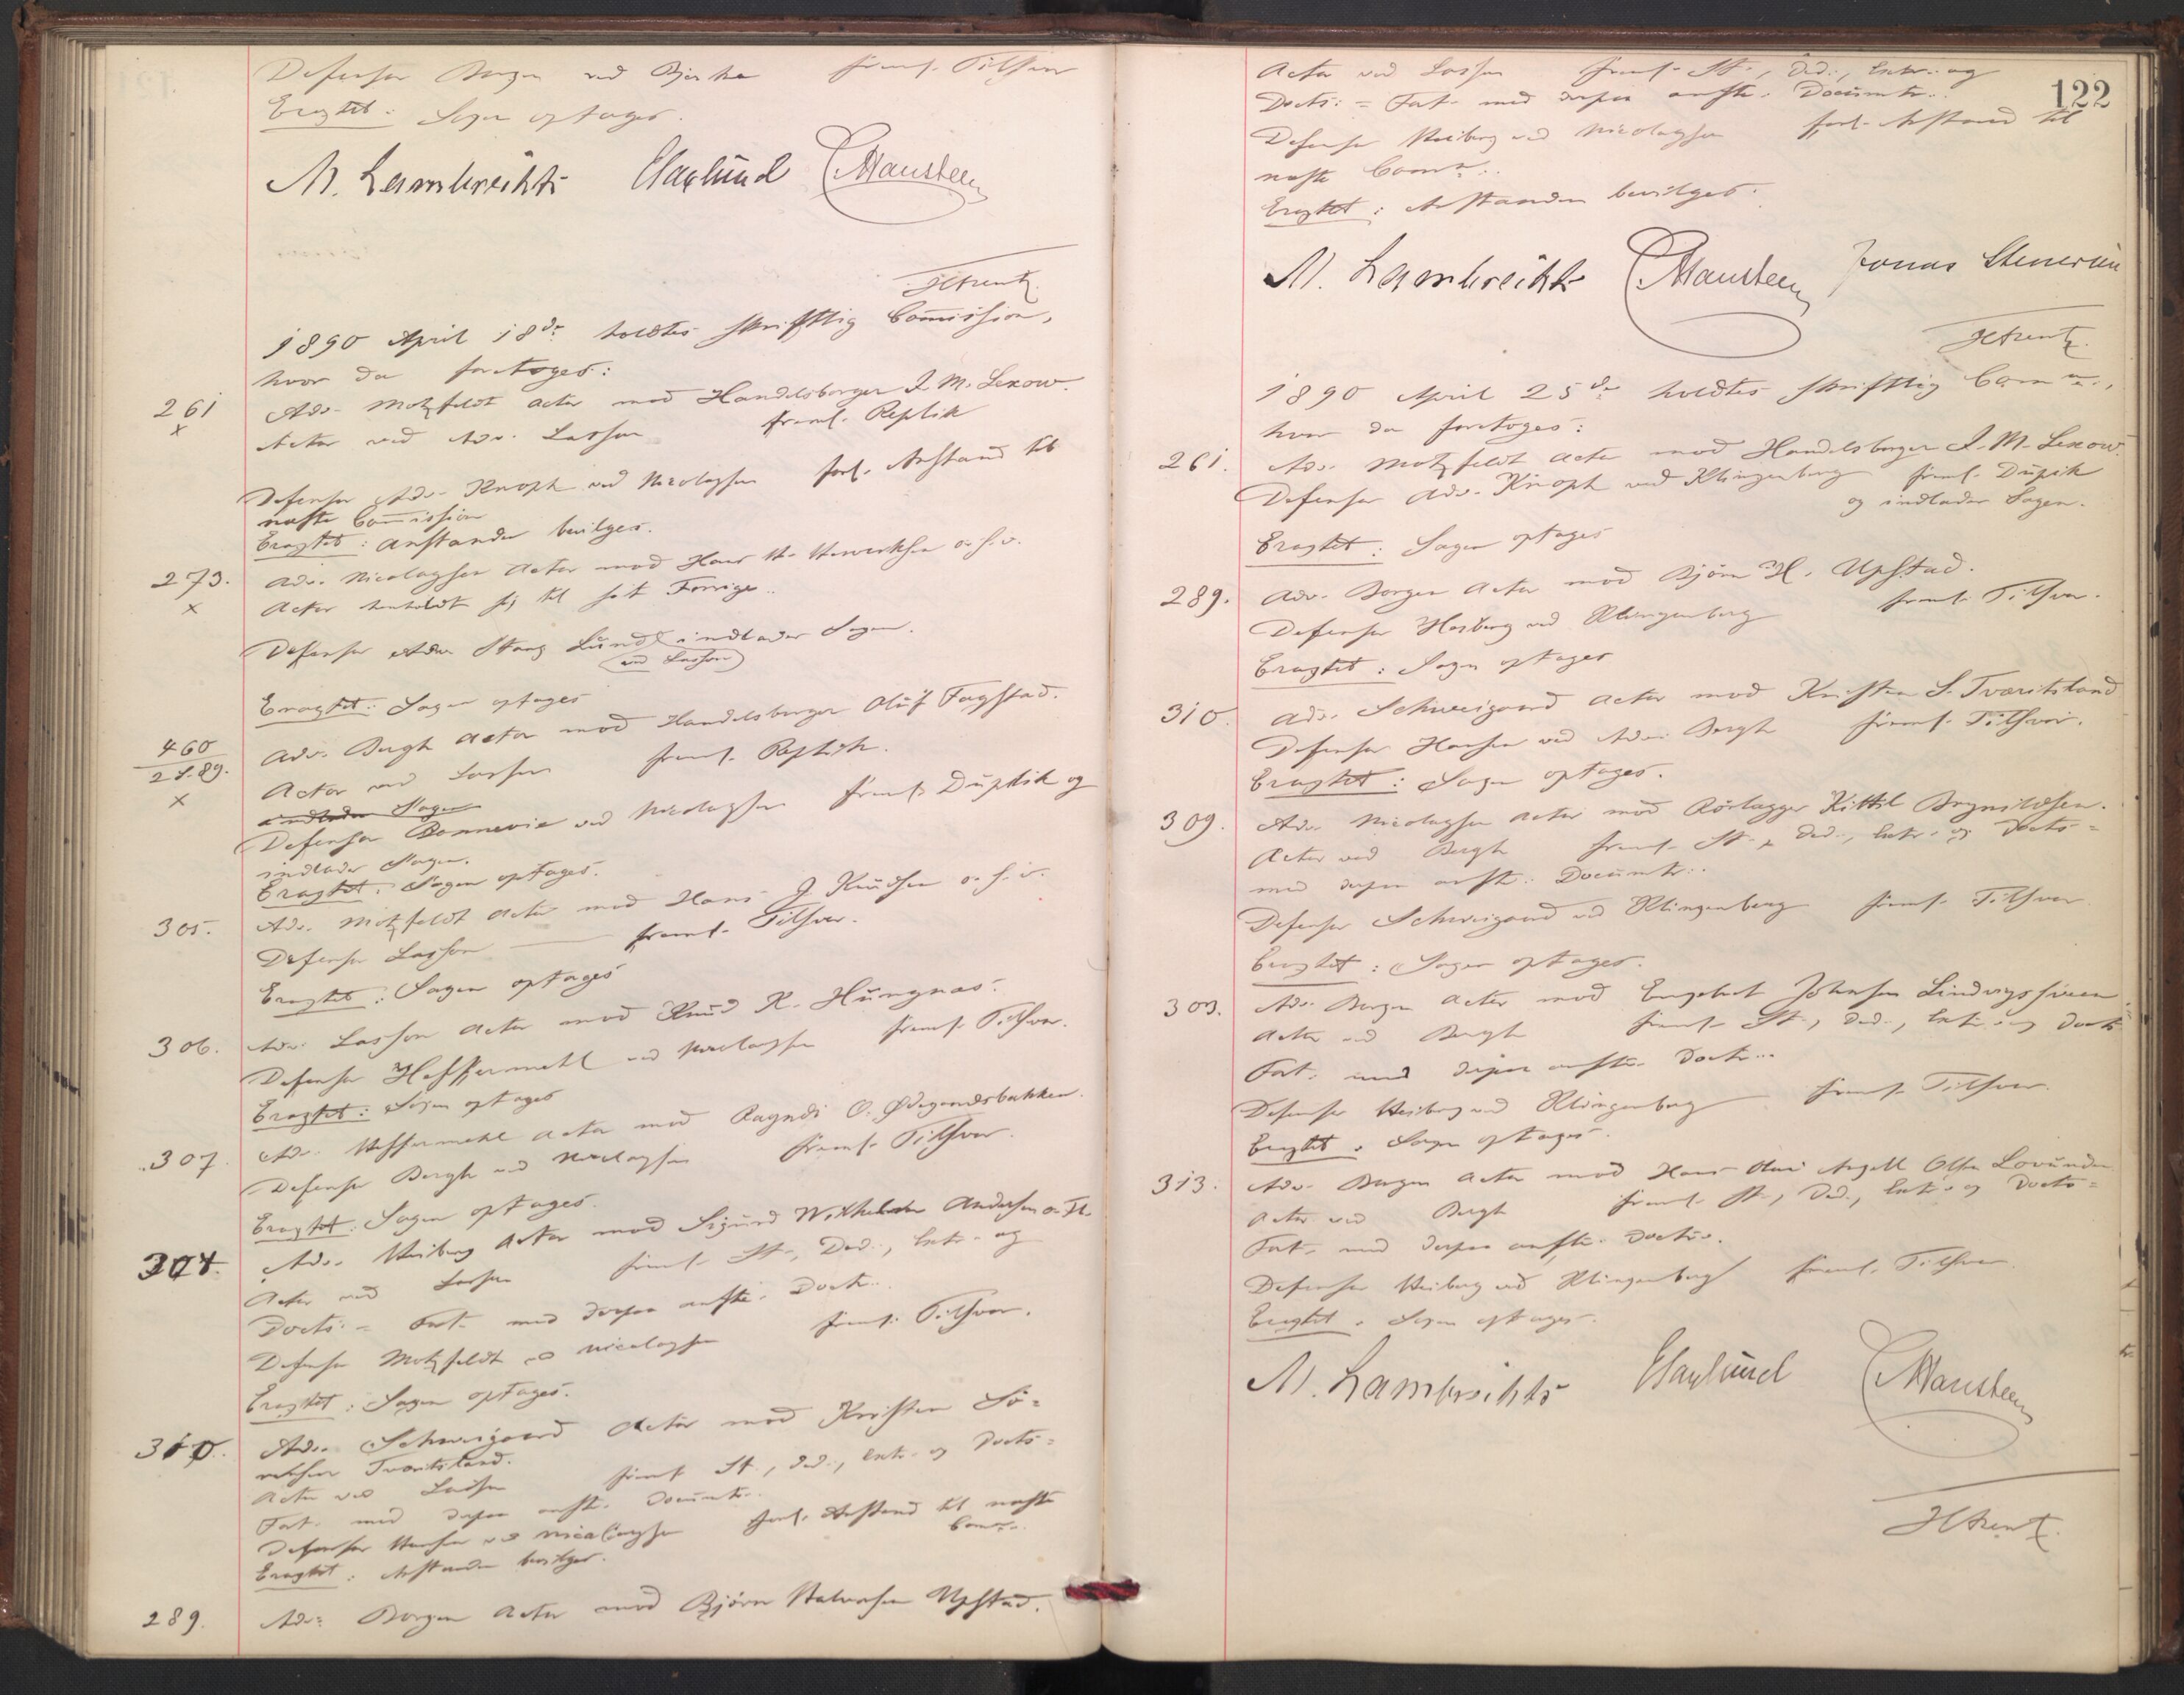 Defensor Borgen ved Bjerke freml. Tilsvar
Eragtet: Sagen optages.
M. Lambrechts EHaglund CHansteen
HArentz.
1890 April 18de holdtes skriftlig Commission,
hvor da foretoges:
261
x
Adv. Motzfeldt Actor mod Handelsborger I. M. Lexow.
Actor ved Adv. Lasson freml. Replik
Defensor Adv. Knoph ved Nicolaysen forl. Anstand til
næste Commission
Eragtet: Anstanden bevilges.
273.
x
Adv. Nicolaysen Actor mod Hans H. Henriksen o. s. v.
Actor henholdt sig til sit Forrige..
Defensor Adv. Stang Lund indlader Sagen.
ved Lasson
Eragtet: Sagen optages
460
2 S. 89.
x
Adv. Bergh Actor mod Handelsborger Oluf Fagstad.
Actor ved Lasson freml. Replik.
indlader Sagen
Defensor Bonnevie ved Nicolaysen freml. Duplik og
indlader Sagen.
Eragtet: Sagen optages.
305.
Adv. Motzfeldt Actor mod Hans J Knudsen o. s. v.
Defensor Lasson — freml. Tilsvar.
Eragtet: Sagen optages
306.
Adv. Lasson Actor mod Knud K. Hungnæs.
Defensor Heffermehl ved Nicolaysen freml. Tilsvar.
Eragtet: Sagen optages
307.
Adv. Heffermehl Actor mod Ragndi O. Ødegaardsbakken.
Defensor Bergh ved Nicolaysen freml. Tilsvar.
Eragtet: Sagen optages.
Adv. Heiberg Actor mod Sigurd Wilhelm Andersen o. Fl.
Actor ved Lasson freml. St., Ded., Extr. og
Docts. = Fort. med derpaa anfte. Doctr..
Defensor Motzfeldt ved Nicolaysen freml. Tilsvar.
Eragtet: Sagen optages.
310.
Adv. Schweigaard Actor mod Kristen Sö=
rensen Tvaritsland.
Actor ved Lasson freml. St., Ded., Extr. og Docts=
Fort. med derpaa anfte. Documtr..
Defensor Hansen ved Nicolaysen forl. Anstand til næste
Comn..
Eragtet: Anstanden bevilges.
289.
Adv. Borgen Actor mod Björn Halvorsen Upstad.
122
Actor ved Lasson freml. St., Ded., Extr. og
Docts. = Fort. med derpaa anfte. Documtr..
Defensor Heiberg ved Nicolaysen forl. Anstand til
næste Comn..
Eragtet: Anstanden bevilges.
M. Lambrechts CHansteen Jonas Stenersen
HArentz.
1890 April 25de holdtes skriftlig Comn.,
hvor da foretoges:
261.
Adv. Motzfeldt Actor mod Handelsborger I. M. Lexow.
Defensor Adv. Knoph ved Klingenberg freml. Duplik
og indlader Sagen.
Eragtet: Sagen optages
289.
Adv. Borgen Actor mod Björn H. Upstad.
Defensor Heiberg ved Klingenberg freml. Tilsvar.
Eragtet: Sagen optages
310.
Adv. Schweigaard Actor mod Kristen S. Tvaritsland
Defensor Hansen ved Adv. Bergh freml. Tilsvar.
Eragtet: Sagen optages.
309.
Adv. Nicolaysen Actor mod Rörlægger Kittil Brynildsen.
Actor ved Bergh freml. St., Ded., Extr. og Docts=
med derpaa anfte. Documtr..
Defensor Schweigaard ved Klingenberg freml. Tilsvar
Eragtet: Sagen optages.
303.
Adv. Borgen Actor mod Engebret Johnsen Lindvigsveen
Actor ved Bergh freml. St., Ded., Extr. og Docts
Fort. med derpaa anfte. Doctr..
Defensor Heiberg ved Klingenberg freml. Tilsvar.
Eragtet: Sagen optages.
313.
Adv. Borgen Actor mod Hans Angell Olsen
Actor ved Bergh freml. St., Ded., Extr. og Docts=
Fort. med derpaa anfte. Doctr..
Defensor Heiberg ved Klingenberg freml. Tilsvar.
Eragtet: Sagen optages.
M. Lambrechts EHaglund CHansteen
HArentz.